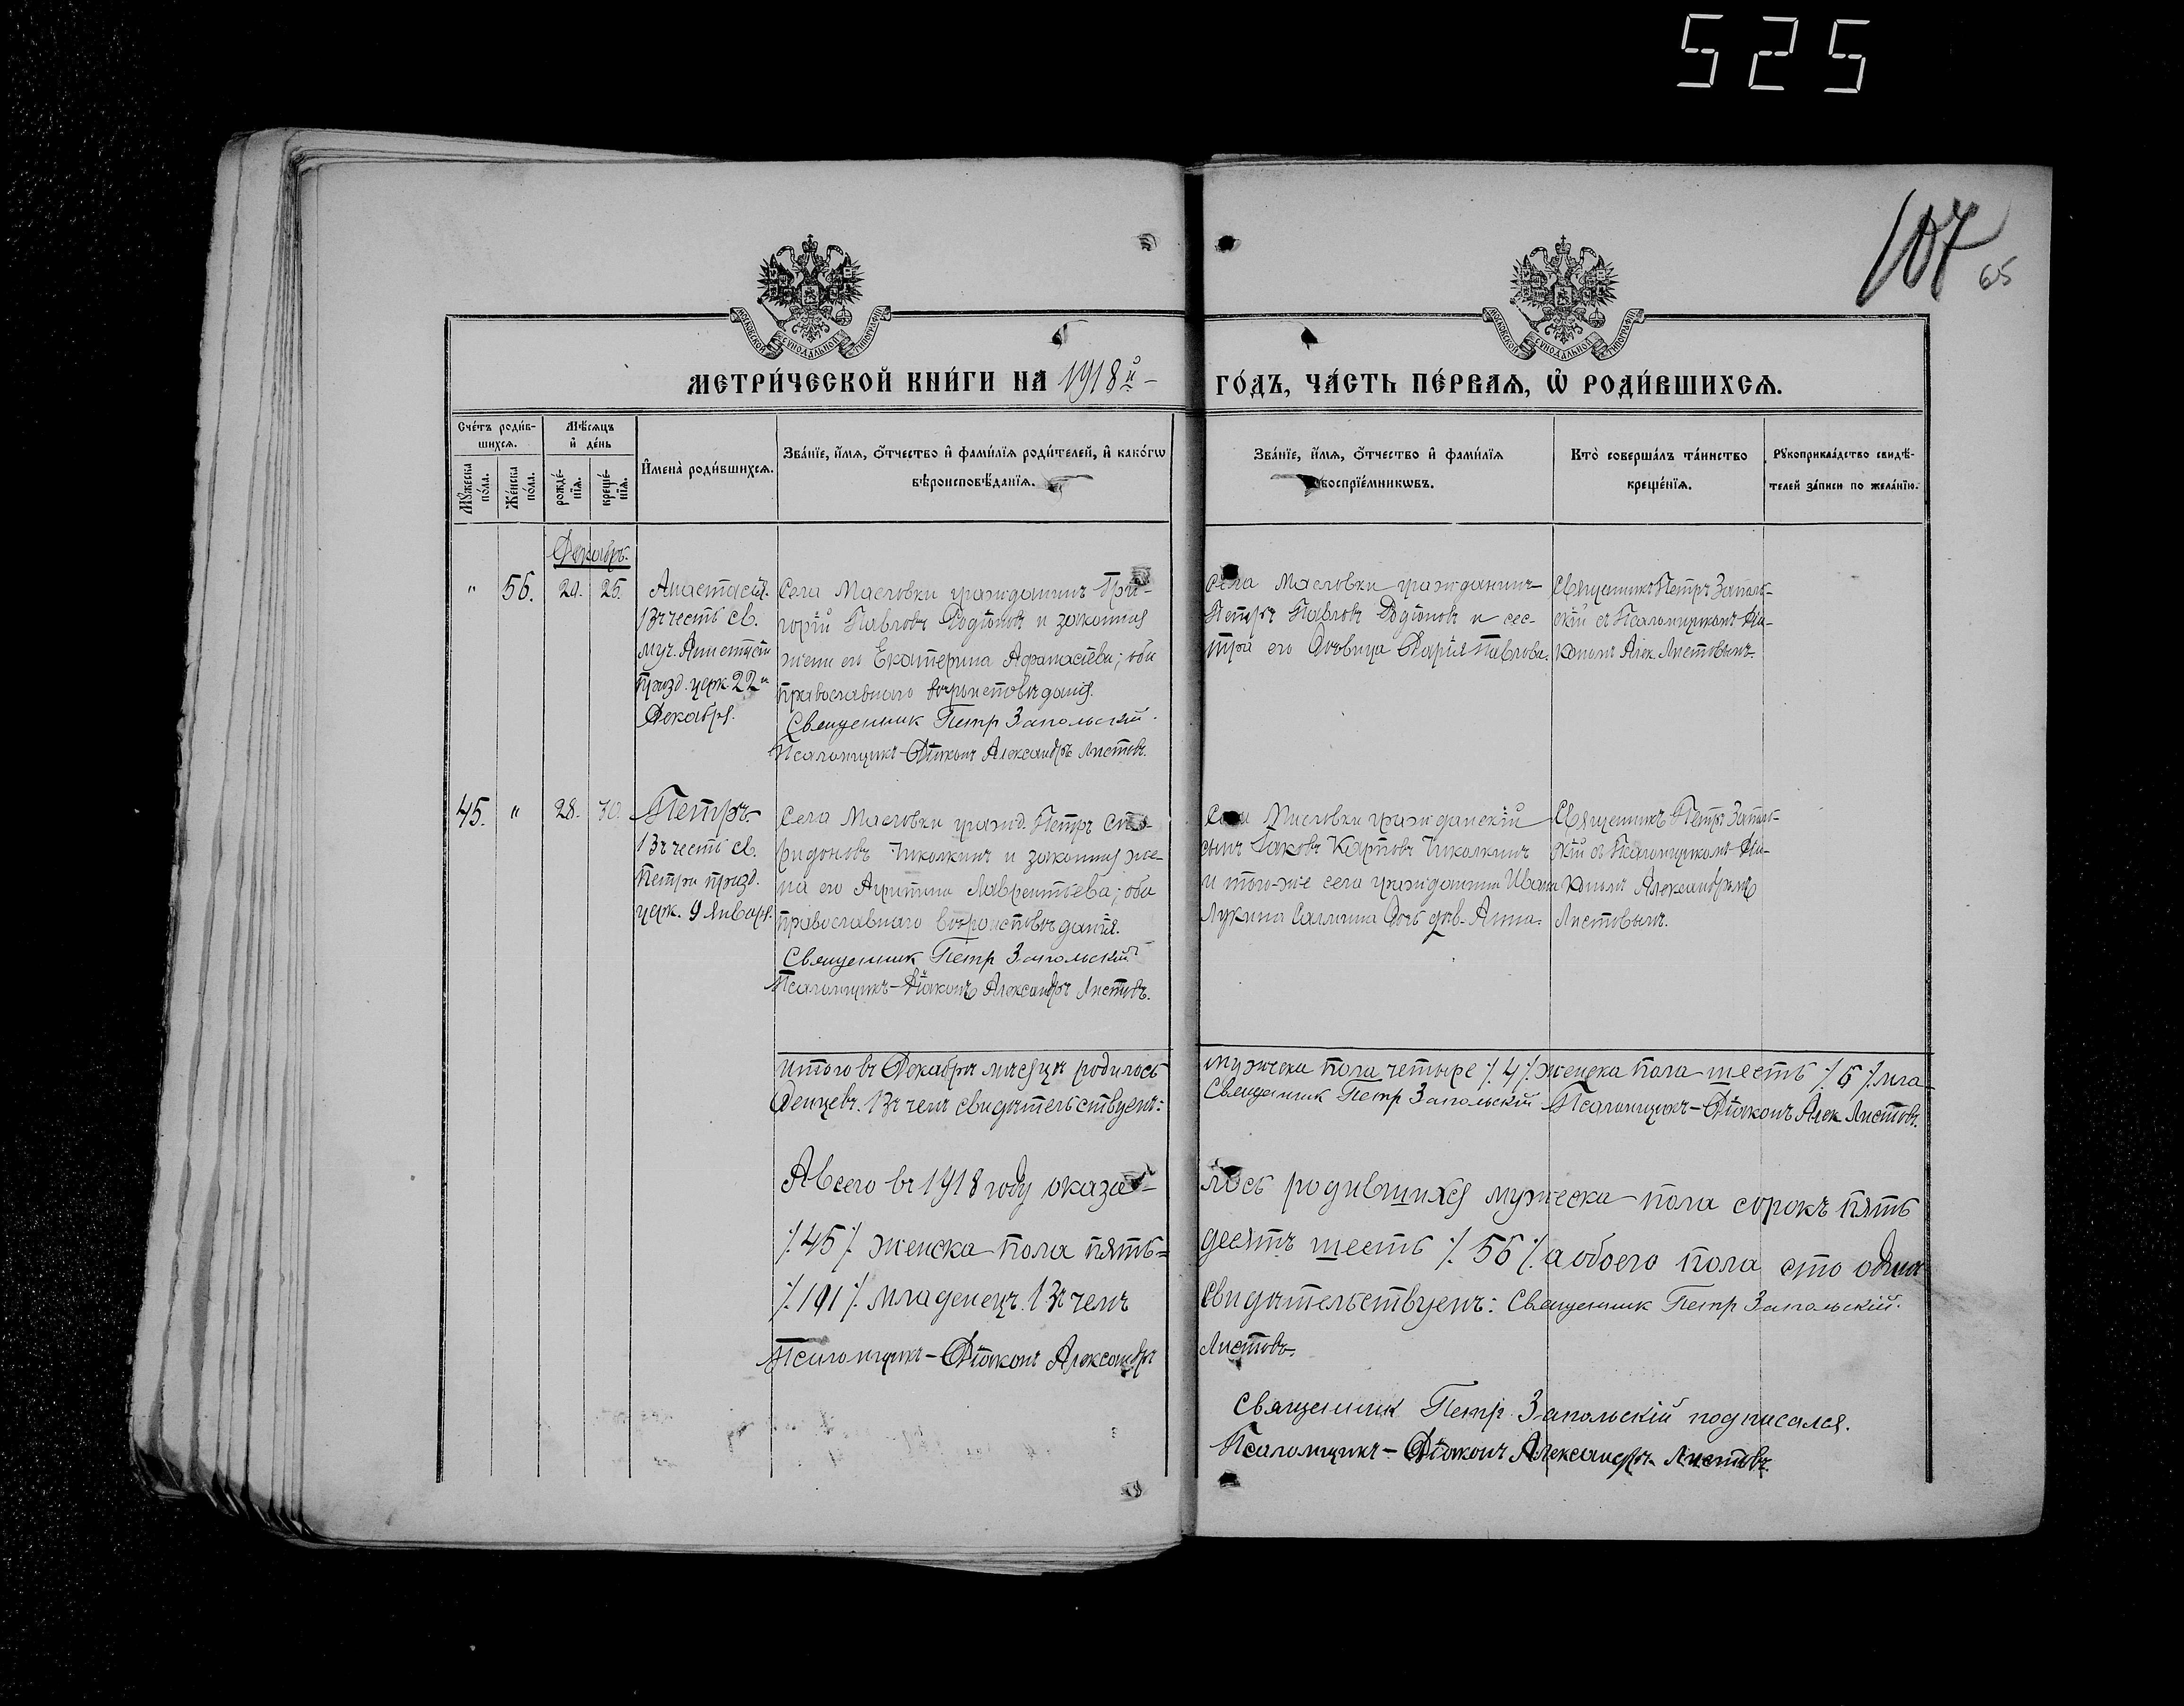 525
107
65
МОСКОВСКОЙ СѴНОДАЛЬНОЙ ТИПОГРАФІИ
МОСКОВСКОЙ СѴНОДАЛЬНОЙ ТИПОГРАФІИ
МЕТРИ́ЧЕСКОЙ КНИ́ГИ НА 1918й
ГО́ДЪ, ЧА́СТЬ ПЕ́РВАѦ, Ѡ҆ РОДИ́ВШИХСѦ.
Сче́тъ роди́в-
шихсѧ.
Мꙋ́жеска
по́ла.
Же́нска
по́ла.
Мѣ́сѧцъ
и҆ де́нь
рожде́-
нїѧ.
креще́-
нїѧ.
И҆мена̀ роди́вшихсѧ.
Зва́нїе, и҆́мѧ, ѻ҆́тчество и҆ фами́лїѧ роди́телей, и҆ како́гѡ
вѣ́роисповѣ́данїѧ.
Зва́нїе, и҆́мѧ, ѻ҆́тчество и҆ фами́лїѧ
воспрїе́мникѡвъ.
Кто̀ соверша́лъ та́инство
креще́нїѧ.
Рꙋкоприкла́дство свидѣ́-
телей за́писи по жела́нїю.
Декабрь.
" 56. 25.
Анастасія.
Въ честь св.
муч. Анастасіи
празд. церк. 22го
Декабря.
Села Масловки гражданинъ Гри-
горій Павловъ Родіоновъ и законная
жена его Екатерина Афанасіева; оба
православнаго вѣроисповѣданія.
Священник Петр Запольскій.
Псаломщикъ-Діаконъ Александръ Листовъ.
Села Масловки гражданинъ
Петръ Павловъ Родіоновъ и сес-
тра его Павлова.
Священникъ Петръ Заполь-
скій съ Псаломщикомъ Діа-
кономъ Алек. Листовымъ.
45. " 28. 30.
Петръ
Въ честь св.
Петра празд.
церк. 9 Января.
Села Масловки гражд. Петръ Спи-
ридоновъ Чиколкинъ и законная же-
на его Агрипина Лаврентьева; оба
православнаго вѣроисповѣданія.
Священник Петр Запольскій
Псаломщикъ-Діаконъ Александръ Листовъ.
Села Масловки гражданскій
сынъ Іаковъ Карповъ Чиколкинъ
и того-же села гражданина Ивана
Лукина дочь дѣв. Анна.
Священникъ Петръ Заполь-
скій съ Псаломщикомъ Діа-
кономъ Александромъ
Листовымъ.
Итого въ Декабрѣ мѣсяцѣ родилось
мужеска пола четыре ٪ 4 ٪ женска пола шесть ٪ 6 ٪ мла-
денцевъ. Въ чемъ свидѣтельствуемъ:
Священник Петр Запольскій Псаломщикъ-Діаконъ Алек. Листовъ.
А всего въ 1918 году оказа-
лось родившихся мужеска пола сорокъ пять
٪ 45 ٪ женска пола пять-
десятъ шесть ٪ 56 ٪ а обоего пола сто одинъ
٪ 101 ٪ младенецъ. Въ чемъ
свидѣтельствуемъ: Священник Петр Запольскій.
Псаломщикъ-Діаконъ Александръ
Листовъ.
Священник Петр Запольскій подписался.
Псаломщикъ-Діаконъ Александръ Листовъ.